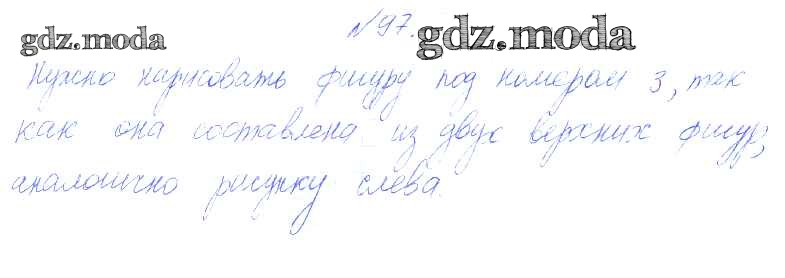 №97.
gdz.moda gdz.moda
Нужно нарисовать фигуру под номером 3, так
как она составлена из двух верхних фигур,
аналогично рисунку слева.